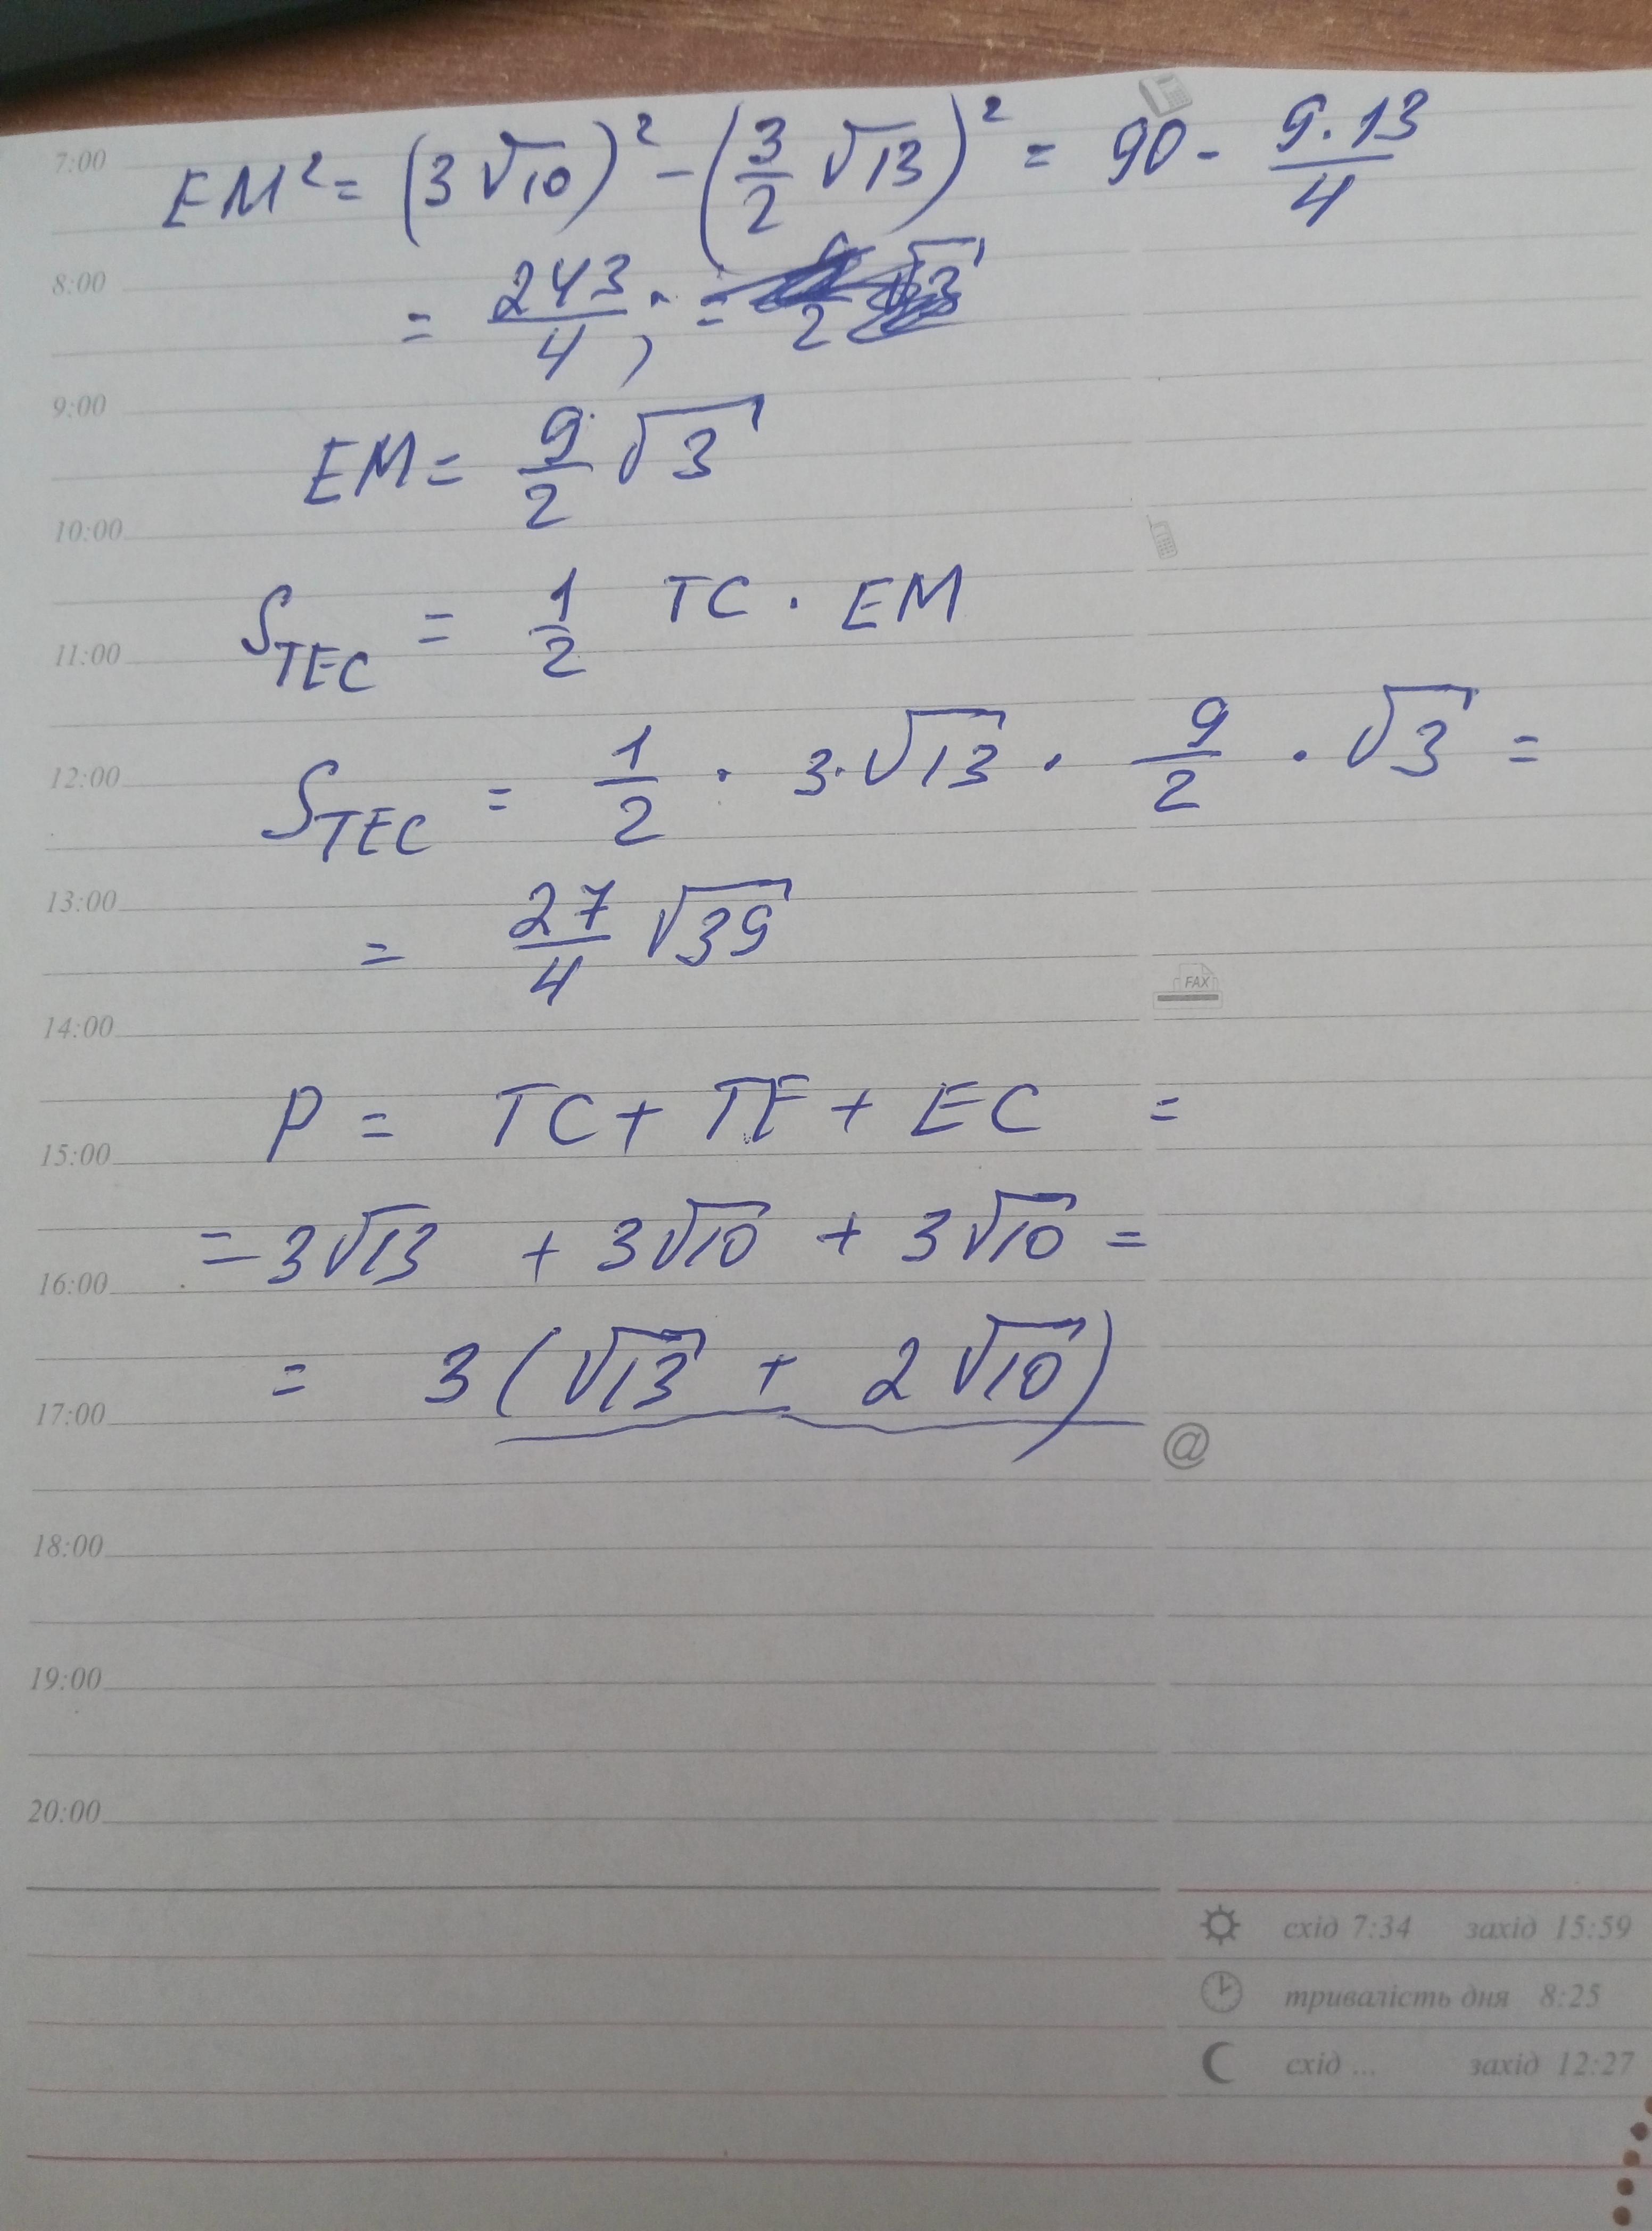 7:00
EM² = (3√10)² - (3/2 √13)² = 90 - 9·13/4
8:00
= 243/4 ; =
9:00
EM = 9/2 √3
10:00
S_TEC = 1/2 TC · EM
11:00
12:00
S_TEC = 1/2 · 3·√13 · 9/2 · √3 =
13:00
= 27/4 √39
FAX
14:00
P = TC + TE + EC =
15:00
= 3√13 + 3√10 + 3√10 =
16:00
= 3(√13 + 2√10)
17:00
@
18:00
19:00
20:00
схід 7:34 захід 15:59
тривалість дня 8:25
схід ... захід 12:27